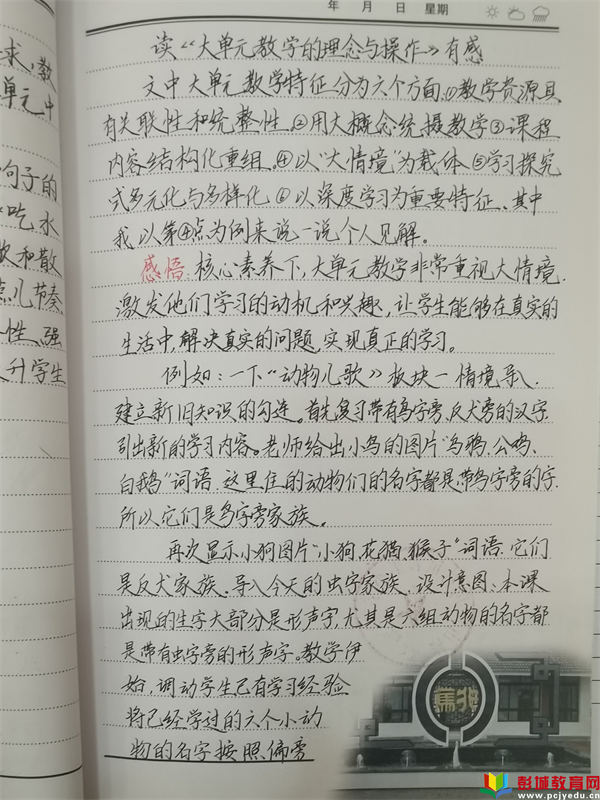 年 月 日 星期
求，教
单元中
句子的
“吃水
欢和散
点儿节奏
性、强
升学生
读“大单元教学的理念与操作》有感
文中大单元教学特征分为六个方面①教学资源具
有关联性和统整性②用大概念统摄教学③课程
内容结构化重组④以“大情境”为载体⑤学习探究
式多元化与多样化⑥以深度学习为重要特征、其中
我以第④点为例来说一说个人见解。
感悟：核心素养下，大单元教学非常重视大情境.
激发他们学习的动机和兴趣，让学生能够在真实的
生活中，解决真实的问题，实现真正的学习。
例如：一下“动物儿歌》板块一情境导入.
建立新旧知识的勾连。首先复习带有鸟字旁、反犬旁的汉字
引出新的学习内容。老师给出小鸟的图片“乌鸦、公鸡、
白鹅”词语.这里住的动物们的名字都是带鸟字旁的字.
所以它们是鸟字旁家族。
再次显示小狗图片“小狗、花猫、猴子”词语.它们
是反犬家族.导入今天的虫字家族.设计意图：本课
出现的生字大部分是形声字，尤其是六组动物的名字都
是带有虫字旁的形声字。教学伊
始，调动学生已有学习经验
将已经学过的六个小动
物的名字按照偏旁
彭城教育网
www.pcjyedu.cn